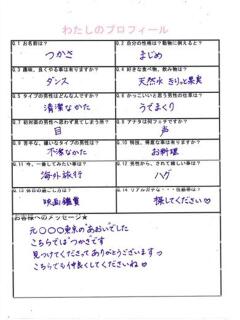 わたしのプロフィール
Q.1 お名前は？
つかさ
Q.2 自分の性格は？動物に例えると？
まじめ
Q.3 趣味、良くやる事はありますか？
ダンス
Q.4 好きな食べ物、飲み物は？
天然水 きりっと果実
Q.5 タイプの男性はどんな人ですか？
清潔なかた
Q.6 かっこいいと思う男性の仕草は？
うでまくり
Q.7 初対面の男性へ思わず見てしまう所？
目
Q.8 アナタは何フェチですか？
声
Q.9 苦手な、嫌いなタイプの男性は？
不潔なかた
Q.10 特技、得意な事は有りますか？
お料理
Q.11 今、一番してみたい事は？
海外旅行
Q.12 男性から、されて嬉しい事は？
ハグ
Q.13 休日の過ごし方は？
映画鑑賞
Q.14
探してください♡
お客様へのメッセージ★
元〇〇〇東京のあおいでした
こちらではつかさです
見つけてくださってありがとうございます
こちらでも仲良くしてくださいね♡